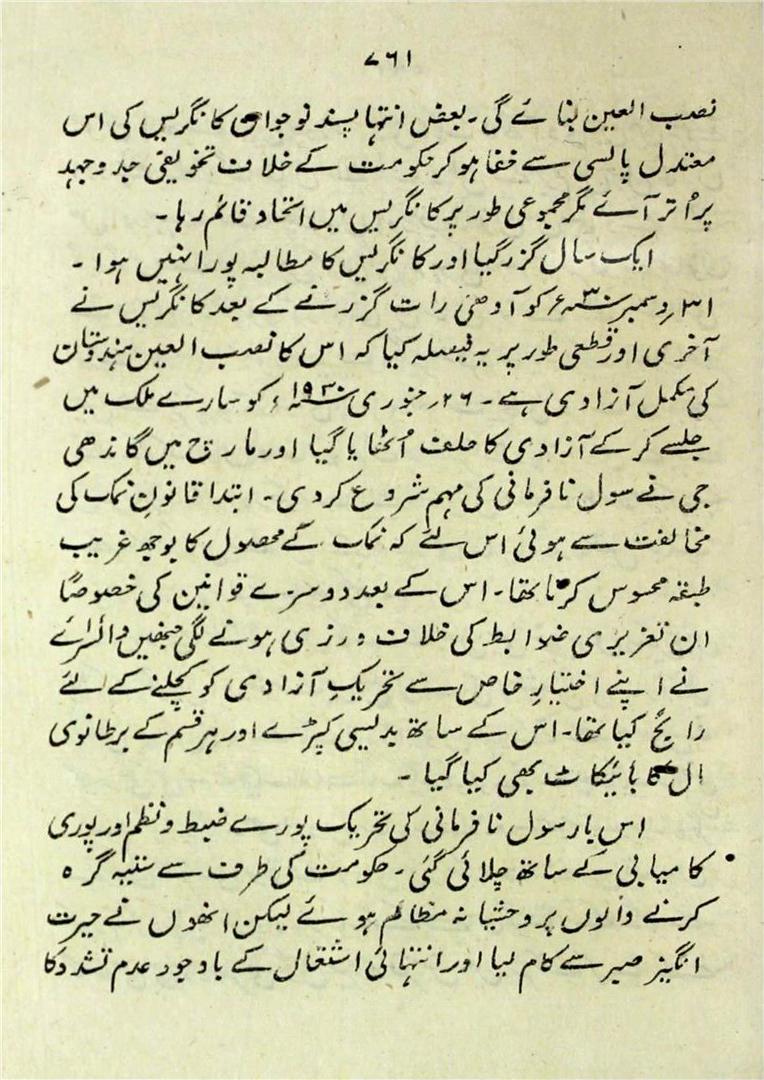 ۷۶۱
نصب العین بنائے گی۔ بعض انتہا پسند نوجوان کانگریس کی اس
معتدل پالسی سے خفا ہو کر حکومت کے خلاف تخویفی جد وجہد
پر اُتر آئے مگر مجموعی طور پر کانگریس میں اتحاد قائم رہا۔
ایک سال گزر گیا اور کانگریس کا مطالبہ پورا نہیں ہوا۔
۳۱؍دسمبر ۳۰ء کو آدھی رات گزرنے کے بعد کانگریس نے
آخری اور قطعی طور پر یہ فیصلہ کیا کہ اس کا نصب العین ہندوستان
کی مکمل آزادی ہے۔ ۲۶؍جنوری ۱۹۳۰ء کو سارے ملک میں
جلسے کرکے آزادی کا حلف اُٹھایا گیا اور مارچ میں گاندھی
جی نے سول نافرمانی کی مہم شروع کردی۔ ابتدا قانونِ نمک کی
مخالفت سے ہوئی اس لئے کہ نمک کے محصول کا بوجھ غریب
طبقہ محسوس کرتا تھا۔ اس کے بعد دوسرے قوانین کی خصوصاً
ان تعزیری ضوابط کی خلاف ورزی ہونے لگی جنھیں وائسرائے
نے اپنے اختیارِ خاص سے تحریکِ آزادی کو کچلنے کے لئے
رائج کیا تھا۔ اس کے ساتھ بدلیسی کپڑے اور ہر قسم کے برطانوی
ال کا بائیکاٹ بھی کیا گیا۔
اس بار سول نافرمانی کی تحریک پورے ضبط و نظم اور پوری
کامیابی کے ساتھ چلائی گئی۔ حکومت کی طرف سے ستیہ گرہ
کرنے والوں پر وحشیانہ مظالم ہوئے لیکن انھوں نے حیرت
انگیز صبر سے کام لیا اور انتہائی اشتعال کے باوجود عدم تشدد کا